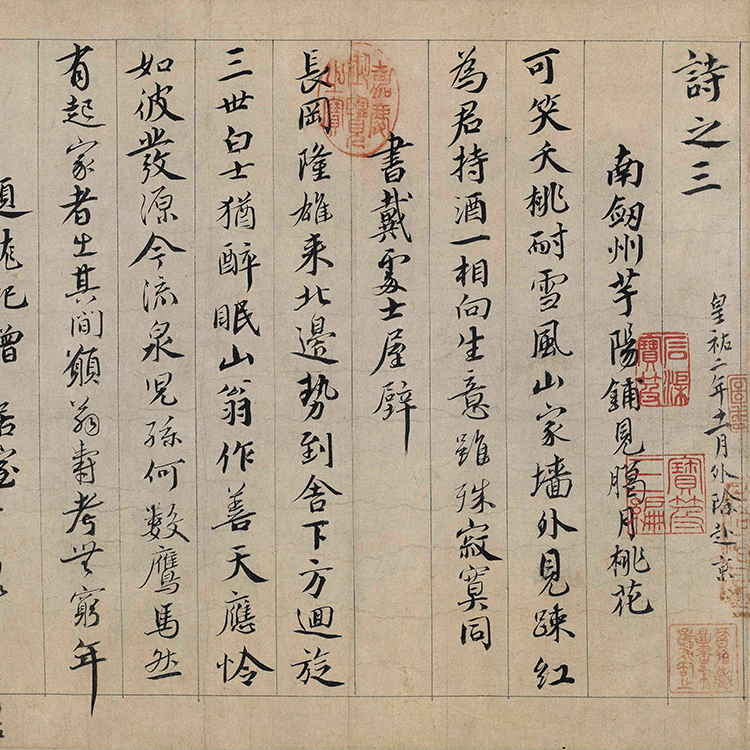 詩之三
皇祐二年十一月外除赴京
南劒州芋陽鋪見臘月桃花
可笑夭桃耐雪風山家墻外見疎紅
為君持酒一相向生意雖殊寂寞同
書戴處士屋壁
長岡隆雄來北邊勢到舍下方迴旋
三世白士猶醉眠山翁作善天應怜
如彼發源今流泉兒孫何數鷹馬然
有起家者出其間願翁壽考無窮年
題龍紀僧居室
嘉慶御覽之寶
寶笈三編